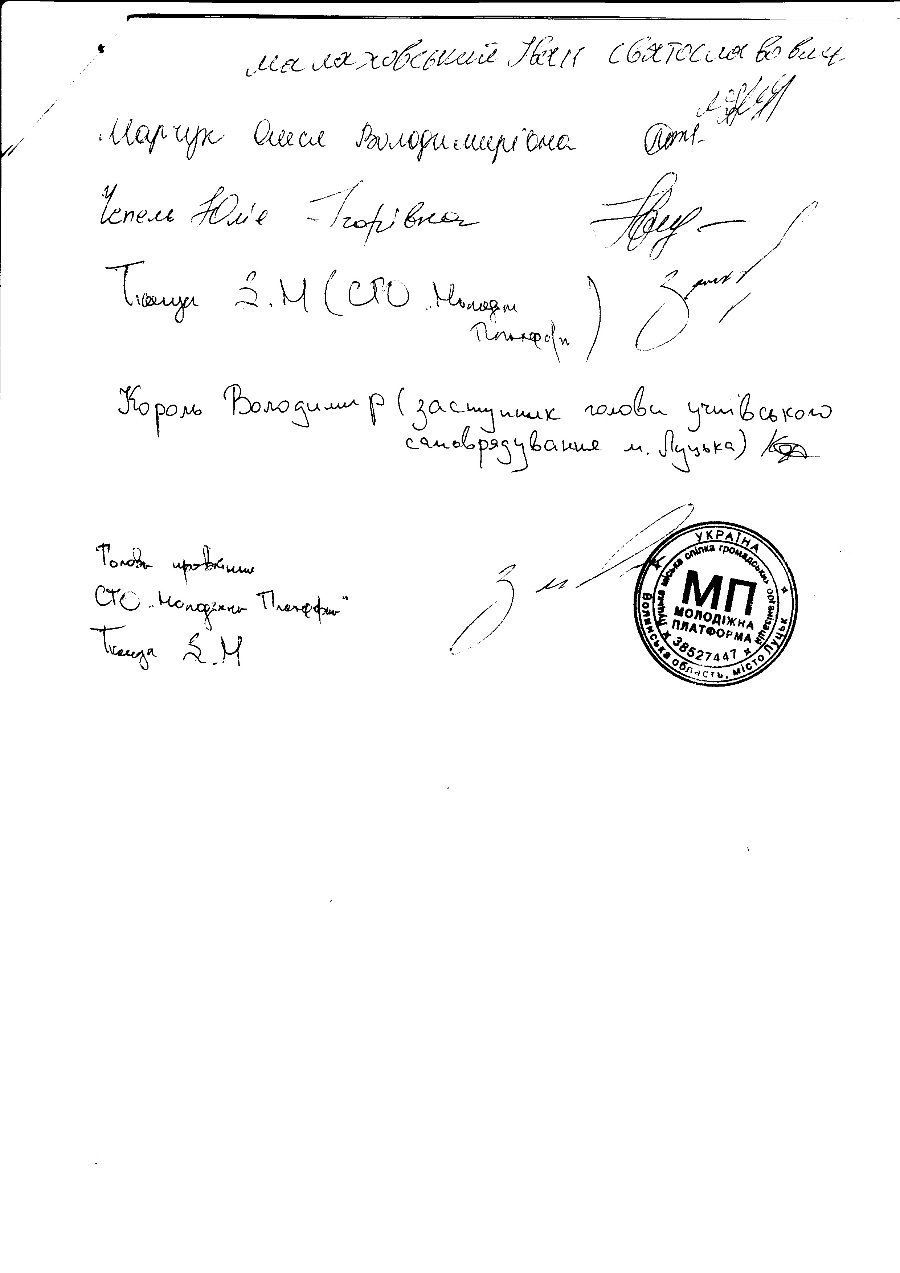 Малаховський Іван Святославович
Марчук Олеся Володимирівна
Чепель Юлія Ігорівна
З.М (СТО "Молодіжн
Платформ)
Король Володимир (заступник голови учнівського
самоврядування м. Луцька)
Голова правління
СТО "Молодіжна Платформа"
З.М
УКРАЇНА
Луцька міська спілка громадських організацій
МП
МОЛОДІЖНА
ПЛАТФОРМА
38527447
Волинська область, місто Луцьк